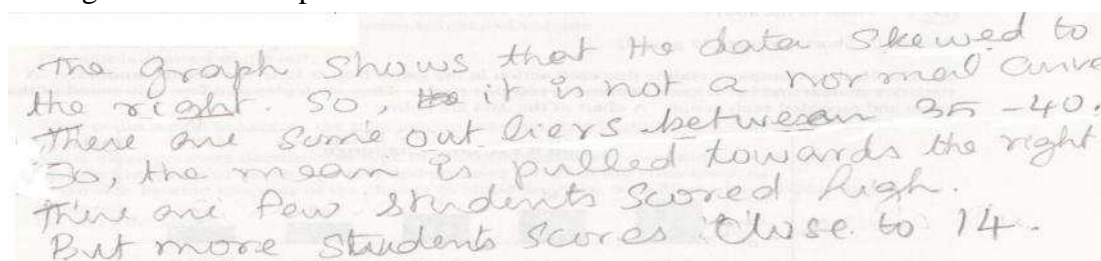 The graph shows that the data skewed to
the right. So, it is not a normal curve
There are some out liers between 35 - 40.
So, the mean is pulled towards the right
There are few students scored high.
But more students scores close to 14.